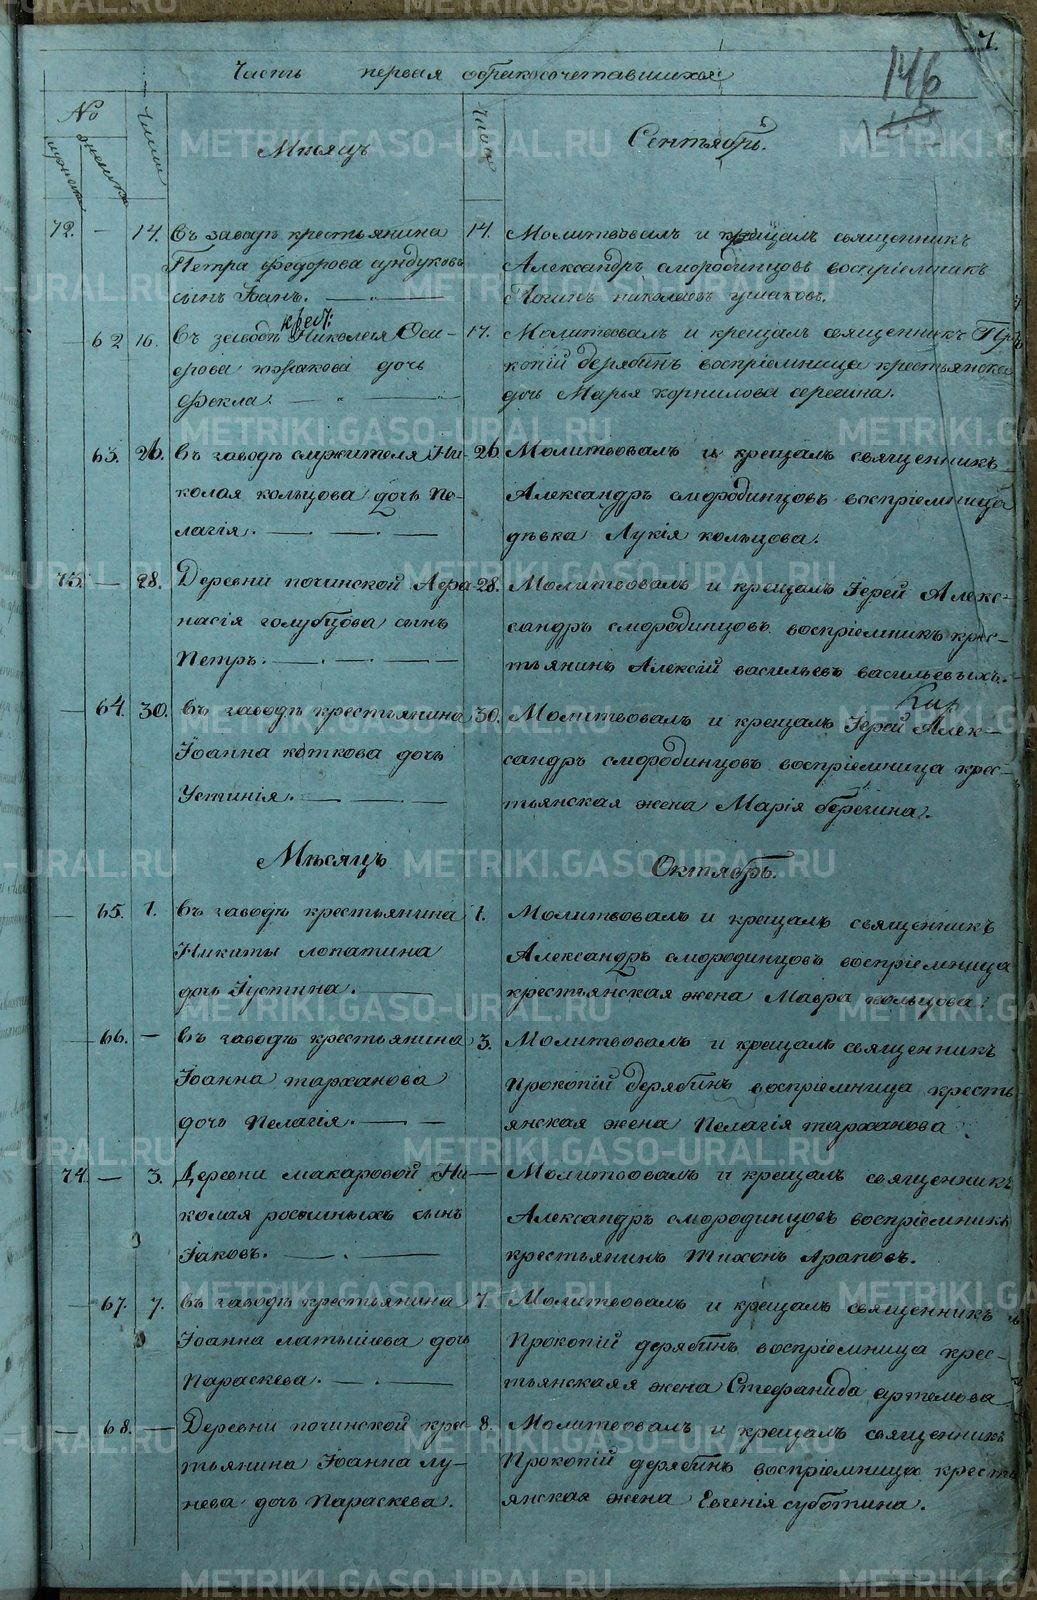 7.
146
Часть первая о бракосочетавшихся
№ Число Число
мужеска женска
Мѣсяцъ Сентябрь.
72. — 14. Въ заводѣ крестьянина 14. Молитвовалъ и крещалъ священникъ
Петра Федорова сундуковъ Александръ смородинцовъ воспріемникъ
сынъ Іоанъ. Логинъ николаевъ ушаковъ.
крест:
62 16. Въ заводѣ Николая Оси- 17. Молитвовалъ и крещалъ священникъ Про-
дочь копій дерябинъ воспріемница крестьянска
Фекла. дочь Марья корнилова серегина.
63. 26. Въ заводѣ служителя Ни- 26. Молитвовалъ и крещалъ священникъ
колая кольцова дочь Пе- Александръ смородинцовъ воспріемница
лагія. дѣвка Лукія кольцова.
73. — 28. Деревни починской Афа- 28. Молитвовалъ и крещалъ Іерей Алекс-
насія голубцова сынъ сандръ смородинцовъ воспріемникъ крес-
Петръ. тьянинъ Алексій васильевъ васильевыхъ.
64. 30. Въ заводѣ крестьянина 30. Молитвовалъ и крещалъ Іерей Алек-
Іоанна коткова дочь сандръ смородинцовъ воспріемница крес-
Устинія. тьянская жена Марія берегина.
Мѣсяцъ Октябрь.
65. 1. Въ заводѣ крестьянина 1. Молитвовалъ и крещалъ священникъ
Никиты лопатина Александръ смородинцовъ воспріемница
дочь Іустина. крестьянская жена Мавра кольцова.
66. — Въ заводѣ крестьянина 3. Молитвовалъ и крещалъ священникъ
Іоанна тарханова Прокопій дерябинъ воспріемница кресть
дочь Пелагія. янская жена Пелагія тарханова.
74. — 3. Деревни макаровой Ни- — Молитвовалъ и крещалъ священникъ
колая сынъ Александръ смородинцовъ воспріемникъ
Іаковъ. крестьянинъ Тихонъ Араповъ.
67. 7. Въ заводѣ крестьянина 7. Молитвовалъ и крещалъ священникъ
Іоанна латышева дочь Прокопій дерябинъ воспріемница крес-
Параскева. тьянская жена Стефанида артемова
— 68. — Деревни починской крес- 8. Молитвовалъ и крещалъ священникъ
тьянина Іоанна лу- Прокопій дерябинъ воспріемница кресть
нева дочь Параскева. янская жена Евгенія суботина.
METRIKI.GASO-URAL.RU